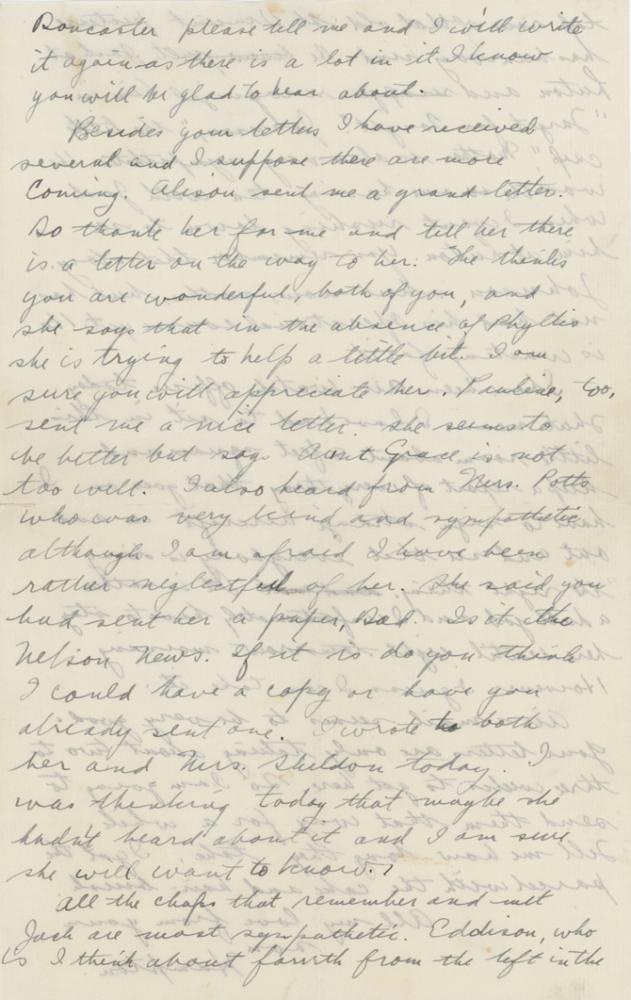 Doncaster please tell me and I will write
it again as there is a lot in it I know
you will be glad to hear about.
Besides your letters I have received
several and I suppose there are more
Coming. Alison sent me a grand letter.
So thank her for me and tell her there
is a letter on the way to her. She thinks
you are wonderful, both of you, and
she says that in the absence of Phyllis
she is trying to help a little bit. I am
sure you will appreciate her. Pauline, too,
sent me a nice letter. she seems to
be better but says Aunt Grace is not
too well. I also heard from Mrs. Potts
who was very kind and sympathetic
although I am afraid I have been
rather neglectful of her. She said you
had sent her a paper, Dad. Is it the
Nelson News. If it is do you think
I could have a copy or have you
already sent one. I wrote to both
her and Mrs. Sheldon today. I
was thinking today that maybe she
hadn't heard about it and I am sure
she will want to know.
All the chaps that remember and met
Jack are most sympathetic. Eddison, who
is I think about fourth from the left in the